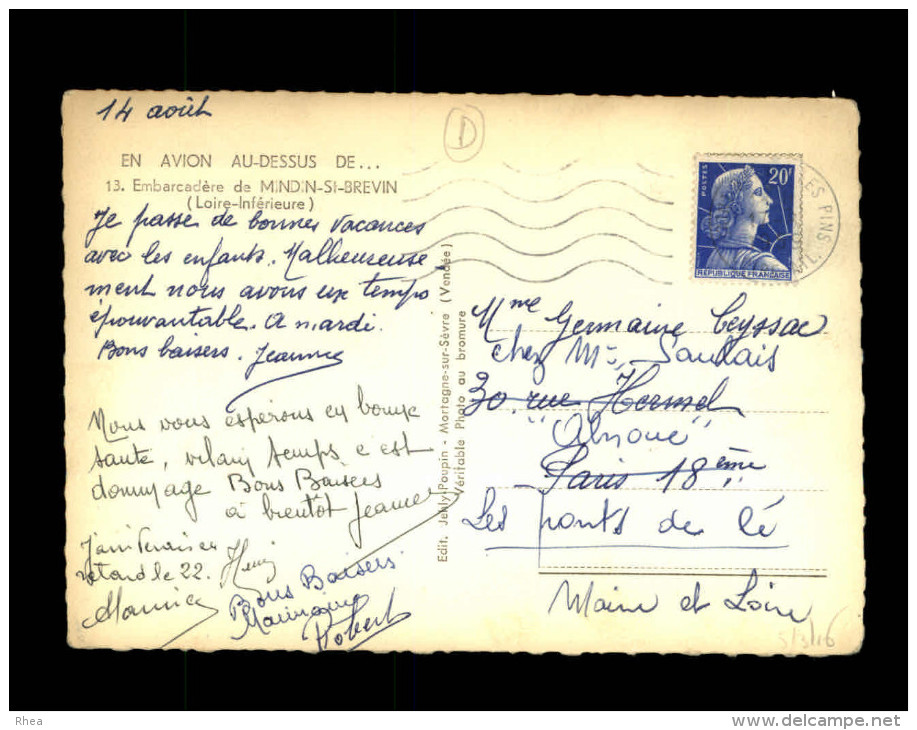 14 août
D
EN AVION AU-DESSUS DE...
13. Embarcadère de MINDIN-St-BREVIN
(Loire-Inférieure)
Je passe de bonnes vacances
avec les enfants. Malheureuse
ment nous avons un temps
épouvantable. A mardi.
Bons baisers. Jeanne
Nous vous espérons en bonne
santé, vilain temps c est
dommage Bons Baisers
à bientôt Jeanne
retard le 22. Henri
Maurice
Bons Baisers
Robert
Edit. Jehly-Poupin - Mortagne-sur-Sèvre (Vendée)
Véritable Photo au bromure
POSTES
20F
REPUBLIQUE FRANÇAISE
ES PINS
Mme Germaine Ceyssac
chez Mr Saulais
30 rue Hermel
Paris 18ème
Les ponts de Cé
Maine et Loire
5/3/16
Rhea
delcampe.net